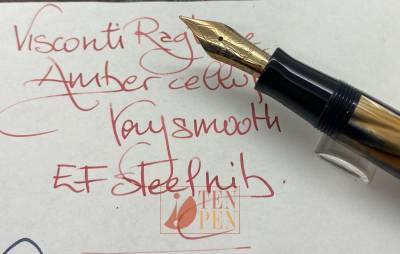 Visconti
Amber
Very smooth
EF Steel nib.
TEN
PEN